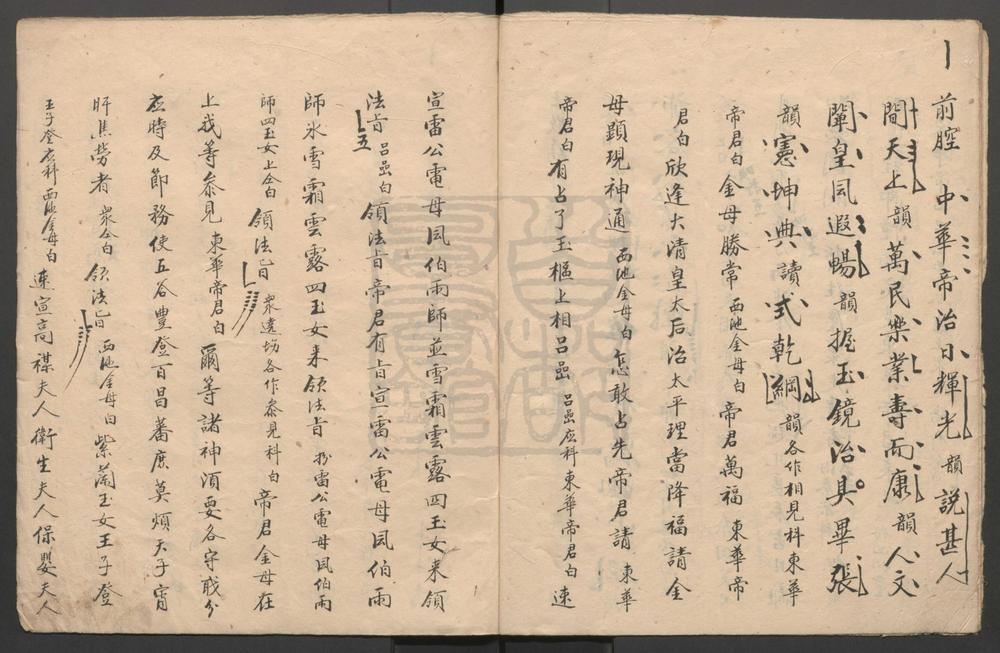 前腔 中華帝治日輝光 韻 說甚人
間天上 韻 萬民樂業壽而康 韻 人文
闡皇風遐暢 韻 握玉鏡治具畢張
韻 憲坤典 讀 式乾綱 韻 各作相見科東華
帝君白 金母勝常 西池金母白 帝君萬福 東華帝
君白 欣逢大清皇太后治太平理當降福請金
母顯現神通 西池金母白 怎敢占先帝君請 東華
帝君白 有占了玉樞上相呂喦 呂喦應科東華帝君白 速
宣雷公電母風伯雨師並雪霜雲露四玉女来領
法旨 呂喦白 領法旨帝君有旨宣雷公電母風伯雨
師氷雪霜雲露四玉女来領法旨 扮雷公電母風伯雨
師四玉女上仝白 領法旨 衆遶塲各作叅見科白 帝君金母在
上我等叅見 東華帝君白 爾等諸神須要各守職分
应時及節務使五谷豊登百昌蕃庶莫煩天子宵
旰焦勞者 衆仝白 領法旨 西池金母白 紫蘭玉女王子登
王子登应科 西池金母白 速宣高禖夫人衛生夫人保嬰夫人